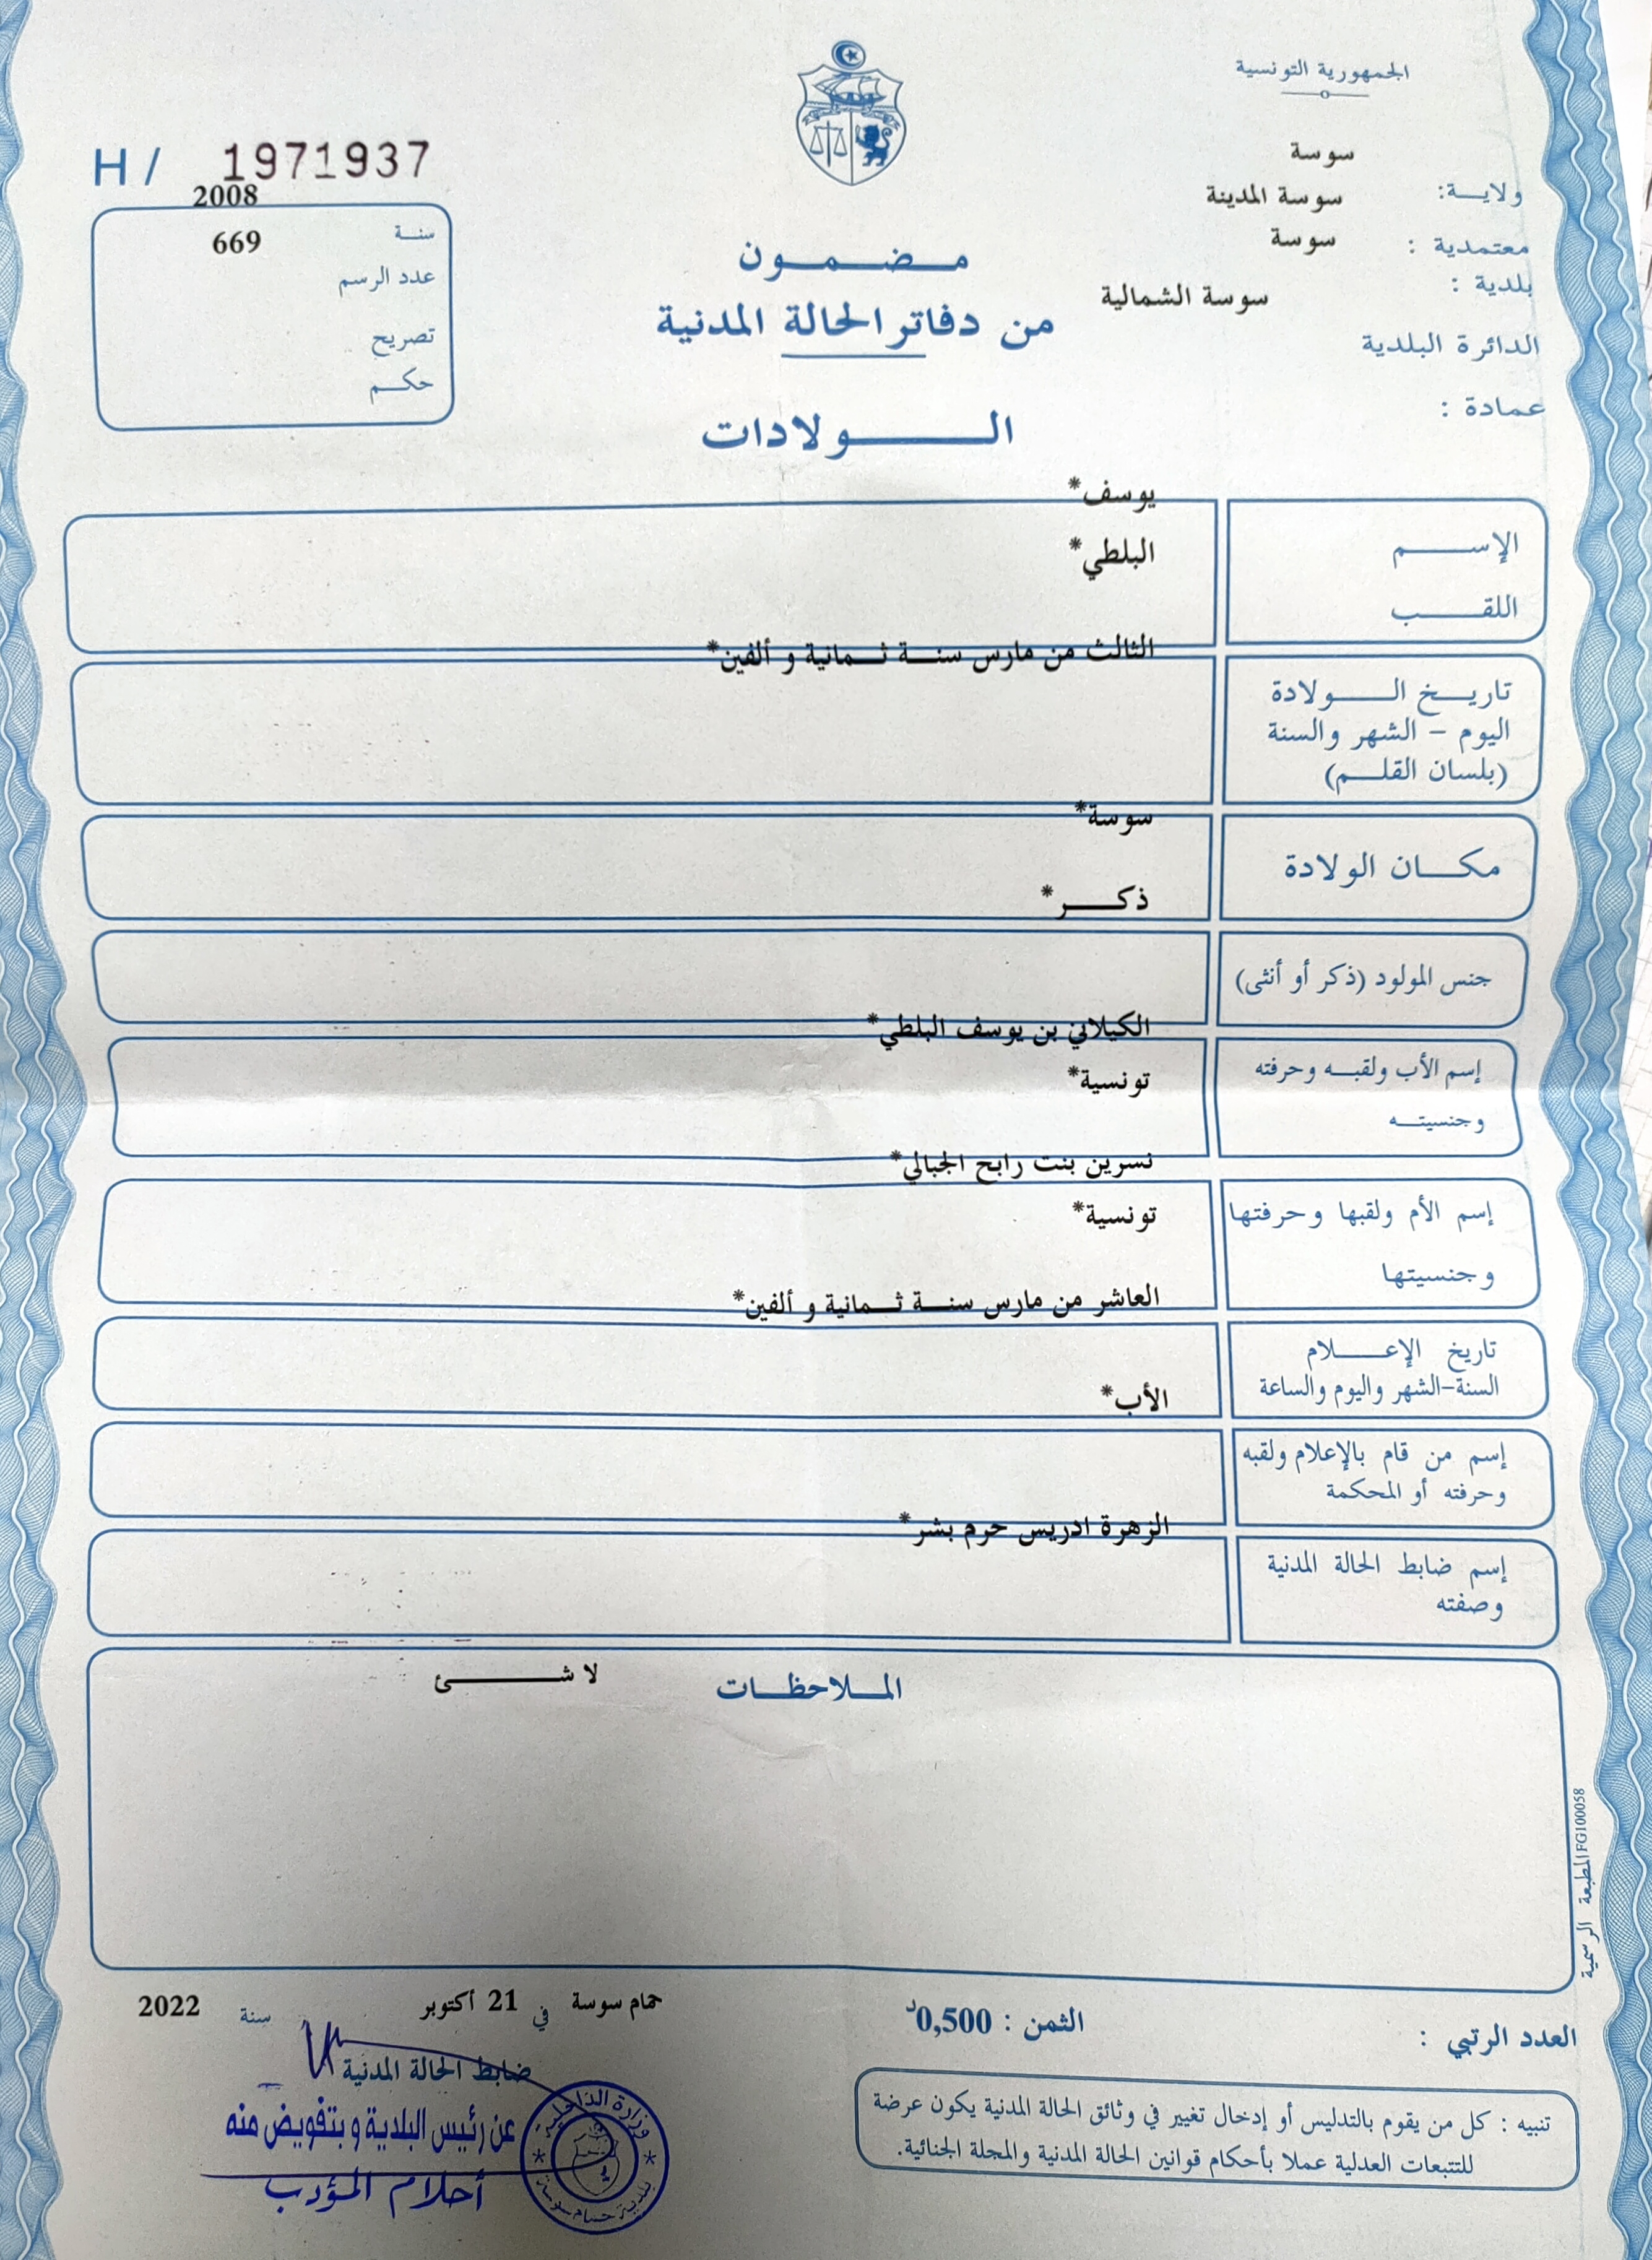 الجمهورية التونسية
H / 1971937
سوسة
ولايـــة:
سوسة المدينة
معتمدية :
سوسة
بلدية :
سوسة الشمالية
الدائرة البلدية
عمادة :
2008
سنــة
669
عدد الرسم
تصريح
حكــم
مـــضـــمـــون
من دفاتر الحالة المدنية
الـــــولادات
يوسف*
الإســـــم
البلطي*
اللقـــــب
الثالث من مارس سنــة ثــمانية و ألفين*
تاريـــخ الـــــولادة
اليوم – الشهر والسنة
(بلسان القلـــم)
سوسة*
مكـــان الولادة
ذكـــــر*
جنس المولود (ذكر أو أنثى)
الكيلاني بن يوسف البلطي*
إسم الأب ولقبـــه وحرفته
تونسية*
وجنسيتـــه
نسرين بنت رابح الجبالي*
إسم الأم ولقبها وحرفتها
تونسية*
وجنسيتها
العاشر من مارس سنــة ثــمانية و ألفين*
تاريخ الإعـــــلام
السنة–الشهر واليوم والساعة
الأب*
إسم من قام بالإعلام ولقبه
وحرفته أو المحكمة
الزهرة ادريس حرم بشر*
إسم ضابط الحالة المدنية
وصفته
الملاحظـــات
لا شـــــئ
المطبعة الرسمية FG100058
حمام سوسة في 21 أكتوبر سنة 2022
العدد الرتبي :
الثمن : 0,500د
ضابط الحالة المدنية
عن رئيس البلدية و بتفويض منه
أحلام المؤدب
وزارة الداخلية
بلدية حمام سوسة
تنبيه : كل من يقوم بالتدليس أو إدخال تغيير في وثائق الحالة المدنية يكون عرضة
للتتبعات العدلية عملا بأحكام قوانين الحالة المدنية والمجلة الجنائية.